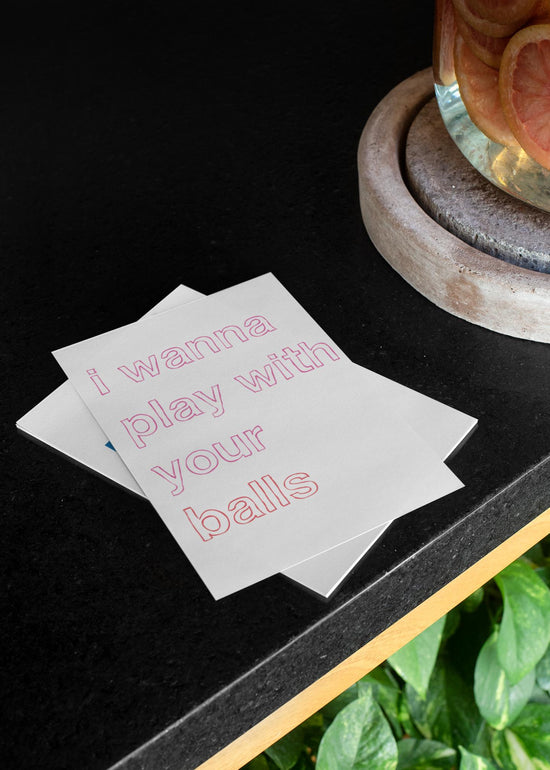 i wanna
play with
your
balls